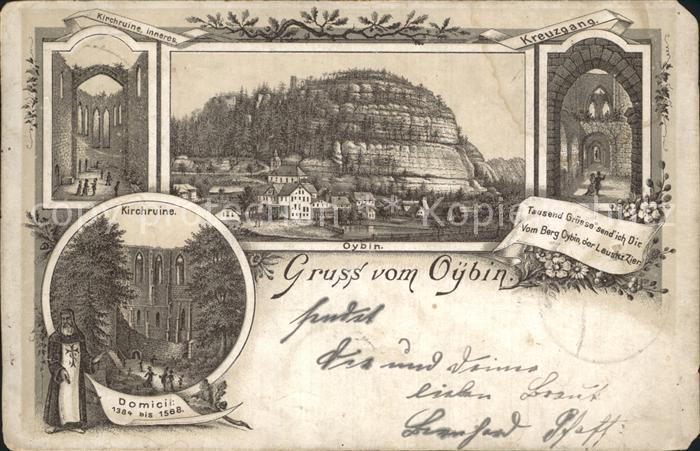 Kirchruine, inneres.
Kreuzgang.
Oybin.
Kirchruine.
Tausend Grüsse send' ich Dir
Vom Berg Oybin, der Lausitz Zier.
Gruss vom Oÿbin
sendet
Dir und Deiner
lieben Braut
Bernhard Pfaff.
Domicil:
1384 bis 1568.